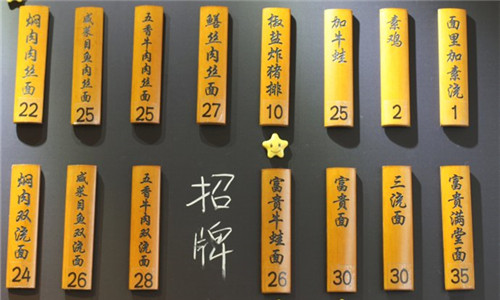 焖肉肉丝面
22
咸菜目鱼肉丝面
25
五香牛肉肉丝面
25
鳝丝肉丝面
27
椒盐炸猪排
10
加牛蛙
25
素鸡
2
面里加素浇
1
焖肉双浇面
24
咸菜目鱼双浇面
26
五香牛肉双浇面
28
招牌
富貴牛蛙面
26
富貴面
30
三浇面
30
富貴满堂面
35